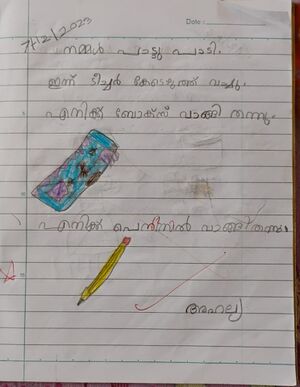 7/12/2023
Date :
നമ്മൾ പാട്ടു പാടി.
ഇന്ന് ടീച്ചർ കേട്ടെഴുത്ത് വച്ചു.
എനിക്ക് ബോക്സ് വാങ്ങി തന്നു.
എനിക്ക് പെൻസിൽ വാങ്ങി തന്നു.
അഹല്യ